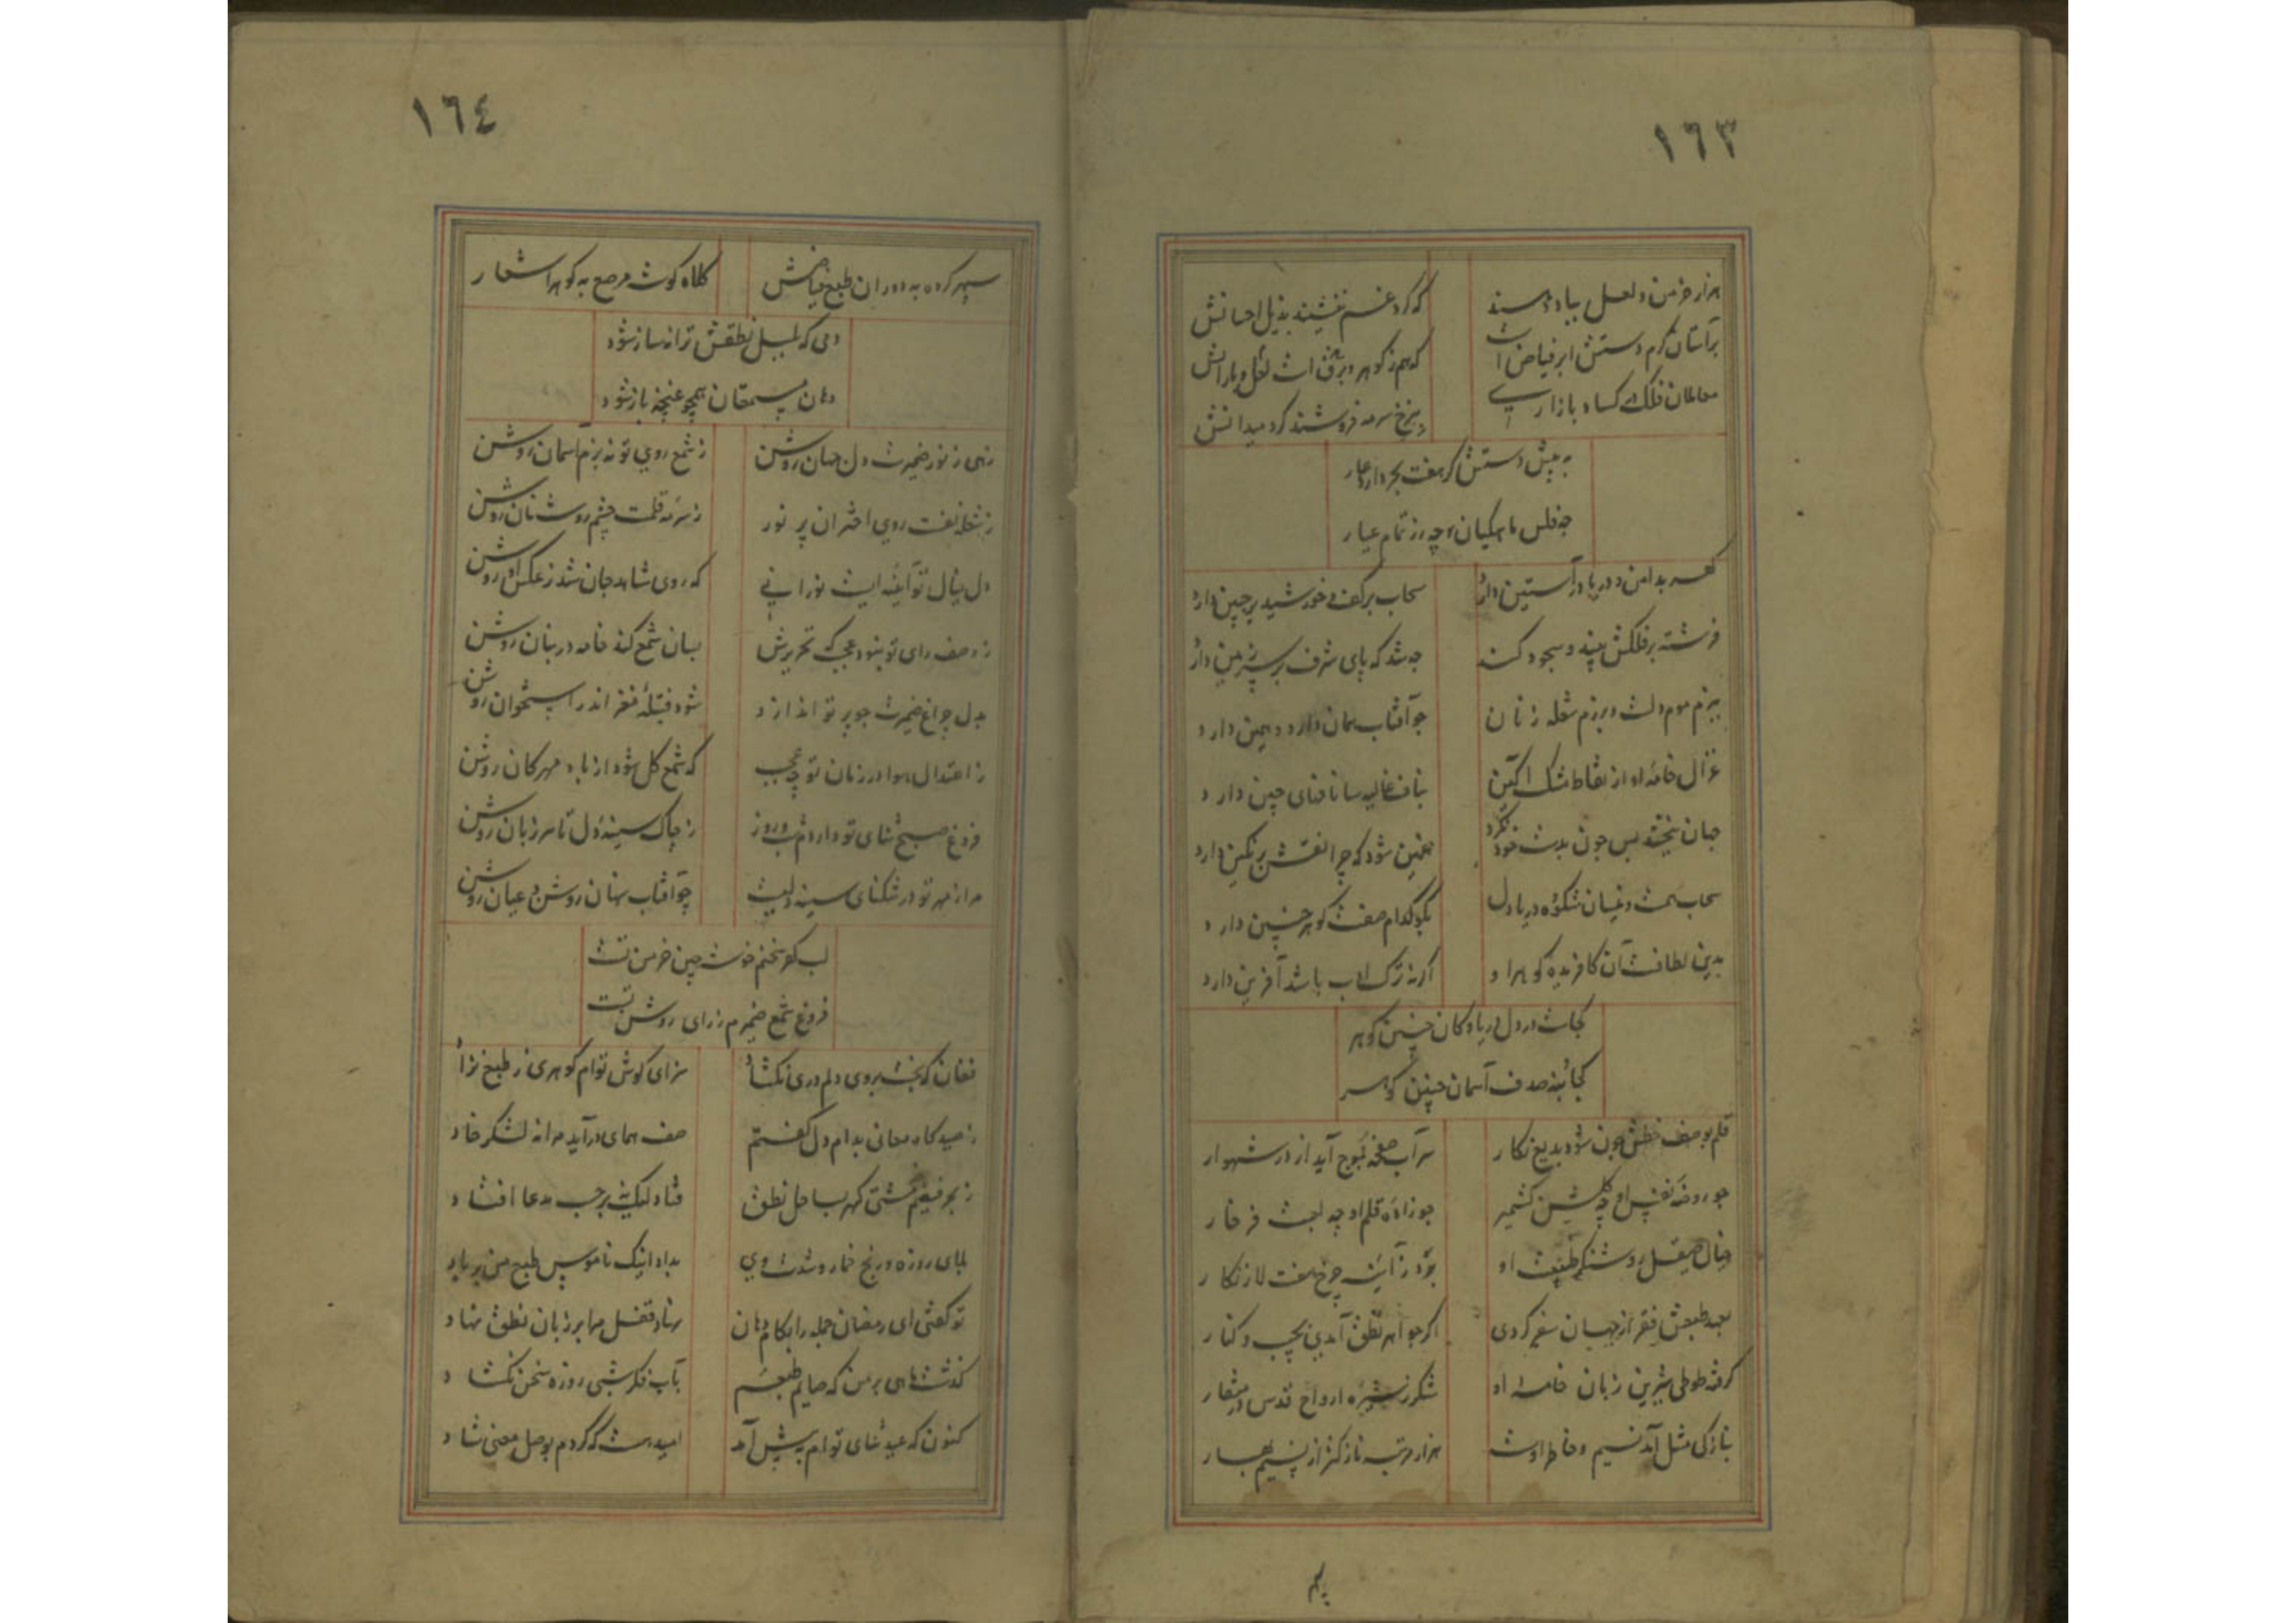 ١٦٣
هزار خرمن در و لعل بباد دهند
که گرد غم ننشیند بذیل احسانش
بر آستان کرم دستش ابر فیاض است
که هم ز گوهر و برق است لعل و بارانش
معاملان فلک کساد بازاری
بنرخ سرمه فروشند گرد میدانش
به پیش دستش که هفت بحر دارد عار
چه فلس ماهیکیان چه زر تمام عیار
گهر بدامن و دریا در آستین دارد
سحاب بر کف و خورشید بر جبین دارد
فرشته بر فلکش بیند و سجود کند
چه شد که پای شرف بر سر زمین دارد
ببزم موم دلست و برزم شعله زنان
چو آفتاب همان دارد و همین دارد
غزال خامه او از نقاط مشک آگین
بناف غالیه سا نافهای چین دارد
جهان نبخشد بس چون بدست خود نگرد
غمین شود که چرا نقش بر نگین دارد
سحاب همت و نیسان شکوه و دریا دل
بگو کدام صفت گوهر چنین دارد
بدین لطافت آن کافریده گوهر او
اگر نه ترک ادب باشد آفرین دارد
کجاست در دل دریا و کان چنین گوهر
کجا به صدف آسمان چنین گوهر
قلم بوصف خطش چون شود بدیع نگار
سر آب صفحه بموج آید از در شهوار
چو روضه نفس او چه گلشن کشمیر
چو زاده قلم او چه لعبت فرخار
خیال صیقل روشنگر طبیعت او
بزد ز آینه چرخ هفت لا زنگار
بعهد طبعش فقر از جهان سفر کردی
اگر جواهر نطق آمدی بجیب و کنار
گرفته طوطی شیرین زبان خامه او
شکر ز شیره ارواح قدس در منقار
بنازکی مثل آمد نسیم و خاطر اوست
هزار مرتبه نازکتر از نسیم بهار
١٦٤
سپهر کرده به دوران طبع فیاضش
کلاه گوشه مرصع به گوهر اشعار
دمی که بلبل نطقش ترانه ساز شود
دهان مستمعان همچو غنچه باز شود
زهی ز نور ضمیرت دل جهان روشن
ز شمع روی تو نه بزم آسمان روشن
ز شعله نفست روی اختران پر نور
ز سرمه قلمت چشم روشنان روشن
دل خیال تو آینه ایست نورانی
که روی شاهد جان شد ز عکس او روشن
ز وصف رای تو نبود عجب که تحریرش
بسان شمع کند خامه در بنان روشن
بدل چراغ ضمیرت چو پرتو اندازد
شود فتیلۀ مغز اندر استخوان روشن
ز اعتدال هوا در زمان تو چه عجب
که شمع گل شود از باد مهرکان روشن
فروغ صبح ثنای تو دارد شب و روز
ز چاک سینه و دل تا سر زبان روشن
مرا ز مهر تو در تنگنای سینه دلیست
چو آفتاب نهان روشن و عیان روشن
لب گهر سخنم خوشه چین خرمن تست
فروغ شمع ضمیرم ز رای روشن تست
فغان که بخت بروی دلم دری نگشاد
سزای گوش توام گوهری ز طبع نزاد
ز صیدگاه معانی بدام دل گفتم
صف همای درآید مرا نه لشکر خاد
ز بحر فیضم کشتی گهر بساحل نطق
فتاد لیک نه بر حسب مدعا افتاد
بلای روزه و رنج خمار و شدت دی
بداد اینک ناموس طبع من بر باد
تو گفتی ای رمضان جمله را بکام دهان
نهاد قفل مرا بر زبان نطق نهاد
گذشت ماهی بر من که صایم طبعم
بآب فکر شبی روزۀ سخن نگشاد
کنون که عید ثنای توام به پیش آمد
امید هست که گردم بوصل معنی شاد